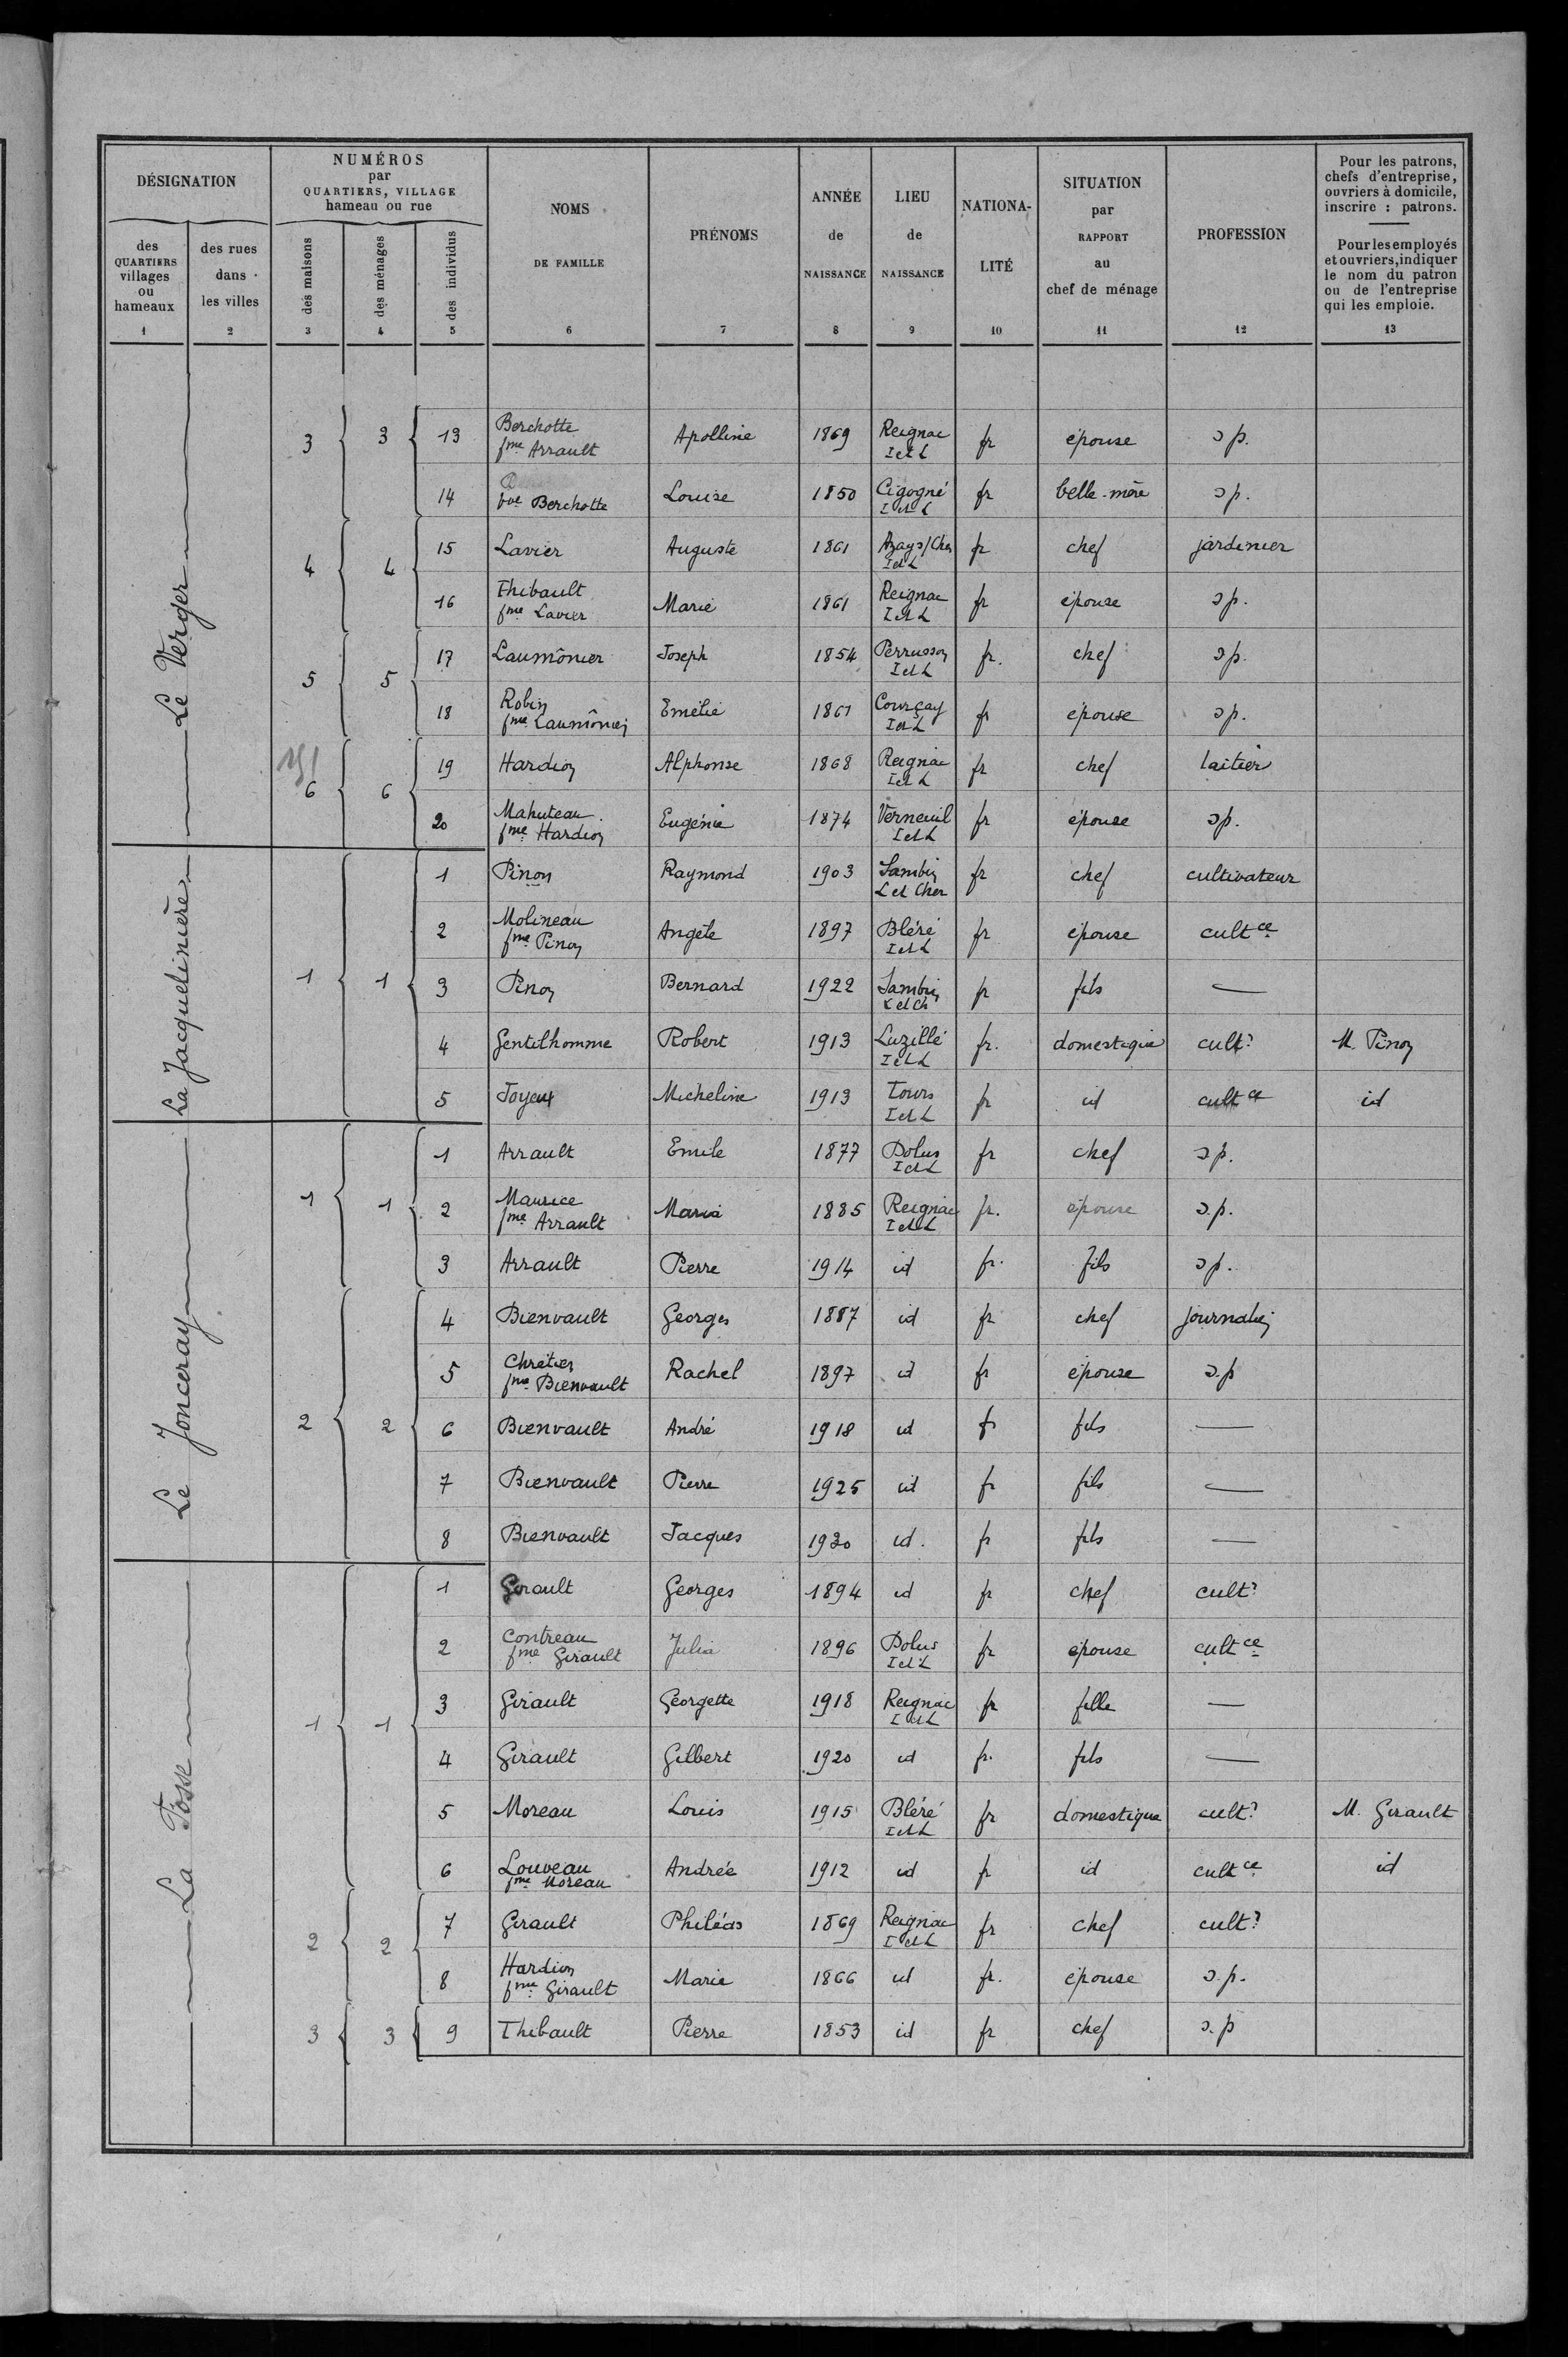 DÉSIGNATION
des QUARTIERS villages ou hameaux
1
des rues dans les villes
2
NUMÉROS
par
QUARTIERS, VILLAGE
hameau ou rue
des maisons
3
des ménages
4
des individus
5
NOMS
DE FAMILLE
6
PRÉNOMS
7
ANNÉE
de
NAISSANCE
8
LIEU
de
NAISSANCE
9
NATIONA-
LITÉ
10
SITUATION
par
RAPPORT
au
chef de ménage
11
PROFESSION
12
Pour les patrons,
chefs d'entreprise,
ouvriers à domicile,
inscrire : patrons.
Pour les employés
et ouvriers, indiquer
le nom du patron
ou de l'entreprise
qui les emploie.
13
Le Verger
3 3 13 Berchotte fme Arrault Apolline 1869 Reignac I et L fr épouse s p.
14 vve Berchotte Louise 1850 Cigogné I et L fr belle-mère s p.
4 4 15 Lavier Auguste 1861 Azay s/ Cher I et L fr chef jardinier
16 Thibault fme Lavier Marie 1861 Reignac I et L fr épouse s p.
5 5 17 Laumônier Joseph 1854 Perrusson I et L fr. chef s p.
18 Robin fme Laumônier Emélie 1861 Courçay I et L fr épouse s p.
6 6 19 Hardion Alphonse 1868 Reignac I et L fr chef laitier
20 Mahuteau fme Hardion Eugénie 1874 Verneuil I et L fr épouse s p.
La Jacquelinière
1 1 1 Pinon Raymond 1903 Sambin L et Cher fr chef cultivateur
2 Molineau fme Pinon Angèle 1897 Bléré I et L fr épouse cult ce
3 Pinon Bernard 1922 Sambin L et Ch fr fils —
4 Gentilhomme Robert 1913 Luzillé I et L fr. domestique cult r M. Pinon
5 Joyeux Micheline 1913 Tours I et L fr id cult ce id
Le Jonceray
1 1 1 Arrault Emile 1877 Dolus I et L fr chef s p.
2 Maurice fme Arrault Maria 1885 Reignac I et L fr. épouse s. p.
3 Arrault Pierre 1914 id fr. fils s p.
2 2 4 Bienvault Georges 1887 id fr chef journalier
5 Chrétien fme Bienvault Rachel 1897 id fr épouse s. p
6 Bienvault André 1918 id fr fils —
7 Bienvault Pierre 1925 id fr fils —
8 Bienvault Jacques 1930 id. fr fils —
La Fosse
1 1 1 Girault Georges 1894 id fr chef cult r
2 Contreau fme Girault Julia 1896 Dolus I et L fr épouse cult ce
3 Girault Georgette 1918 Reignac I et L fr fille —
4 Girault Gilbert 1920 id fr. fils —
5 Moreau Louis 1915 Bléré I et L fr domestique cult r M. Girault
6 Louveau fme Moreau Andrée 1912 id fr id cult ce id
2 2 7 Girault Philéas 1869 Reignac I et L fr chef cult r
8 Hardion fme Girault Marie 1866 id fr. épouse s. p.
3 3 9 Thibault Pierre 1853 id fr chef s. p